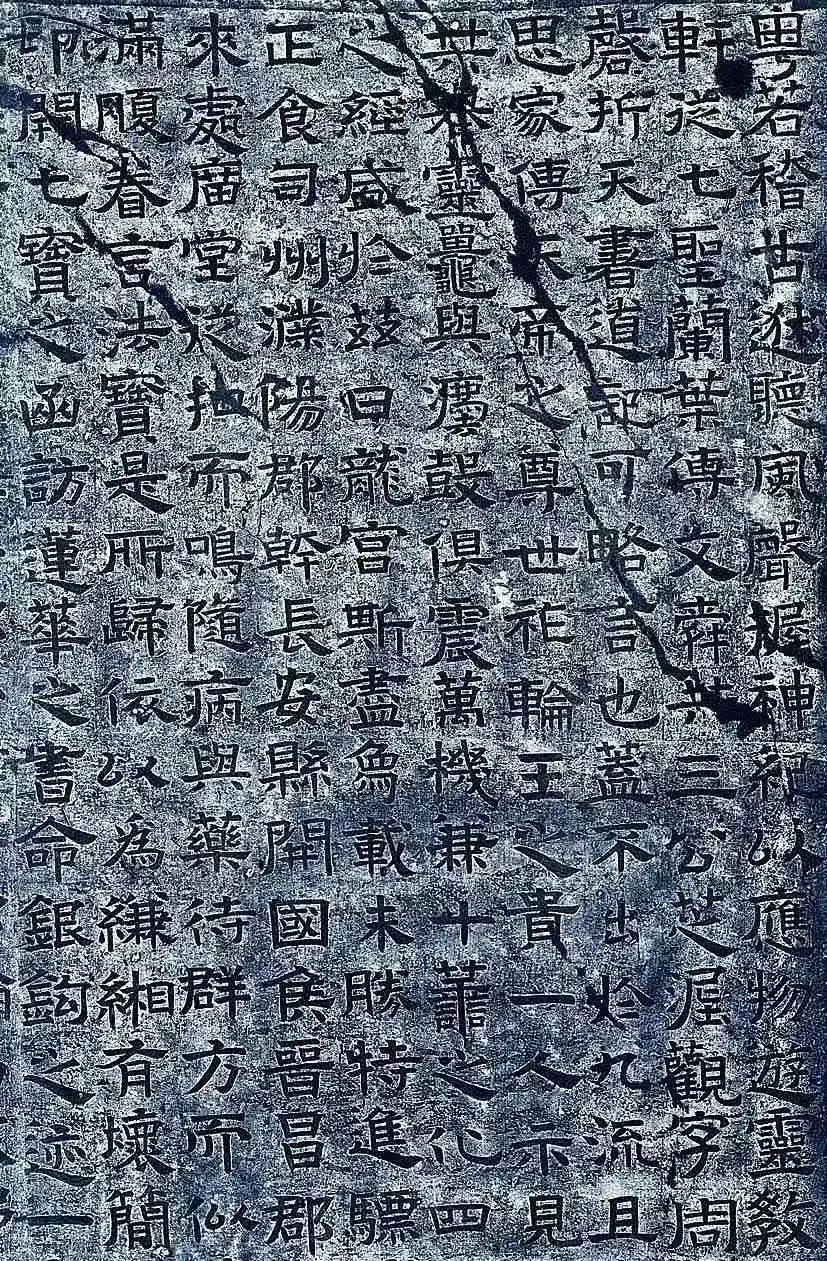 粤若稽古逖聽風聲握神紀以應物遊靈教
軒從七聖蘭葉傳文舜共三公芝泥觀字周
磬折天書道記可略言也蓋不出於九流且
思家傳天帝之尊世祚輪王之貴一人示見
共靈鼉與鼓俱震萬機兼十善之化四
之經盛於茲日龍宮斯盡鳥載未勝特進驃
正食司州濮陽郡幹長安縣開國侯晉昌郡
來處廣堂從扣而鳴隨病與藥待群方而似
滿腹眷言法寶是所歸依以為縑緗有壞簡
印開七寶之函訪蓮華之書命銀鈎之迹一